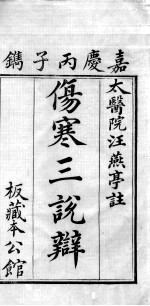 嘉慶丙子鐫
太醫院汪燕亭註
傷寒三說辯
板藏本公館